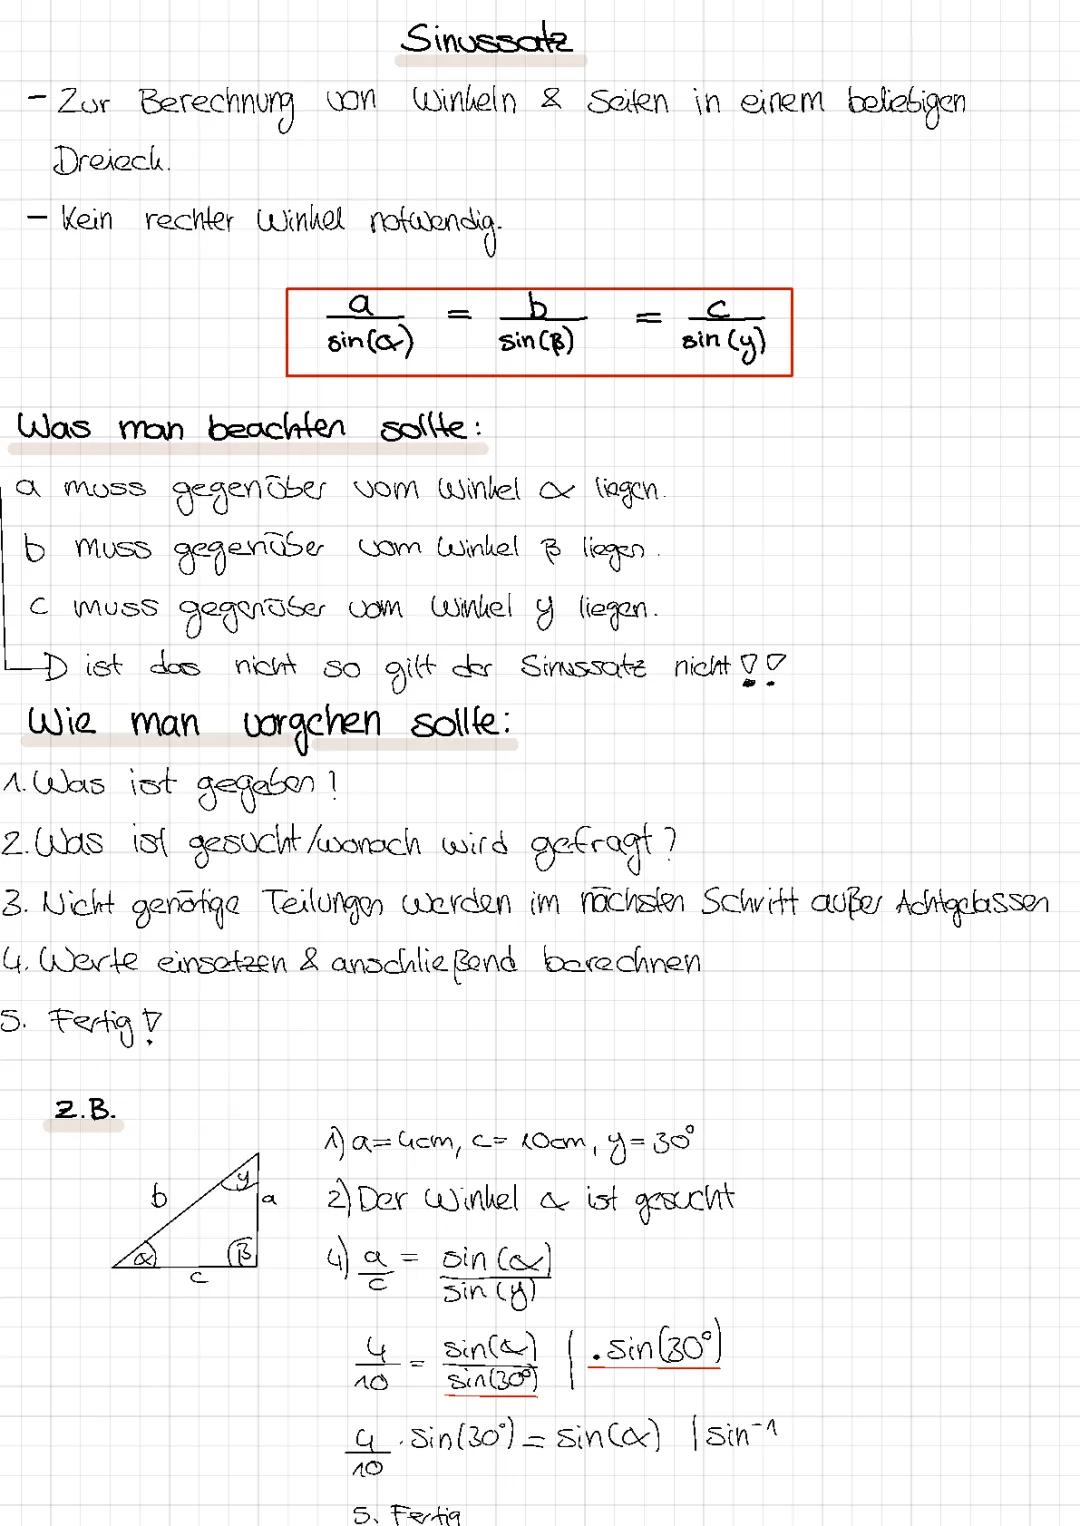 Sinussatz
- Zur Berechnung von Winkeln & Seiten in einem beliebigen
Dreieck.
- Kein rechter Winkel notwendig.
a/sin(α) = b/sin(β) = c/sin(y)
Was man beachten sollte:
a muss gegenüber vom Winkel α liegen.
b muss gegenüber vom Winkel β liegen.
c muss gegenüber vom Winkel y liegen.
ist das nicht so gilt der Sinussatz nicht!!
Wie man vorgehen sollte:
1. Was ist gegeben?
2. Was ist gesucht/wonach wird gefragt?
3. Nicht genötige Teilungen werden im nächsten Schritt außer Achtgelassen
4. Werte einsetzen & anschließend berechnen
5. Fertig!
z.B.
1) a=4cm, c=10cm, y=30°
b y a
2) Der Winkel α ist gesucht
α β
c
4) a/c = sin(α)/sin(y)
4/10 = sin(α)/sin(30°) | ·sin(30°)
4/10 · sin(30°) = sin(α) | sin⁻¹
5. Fertig